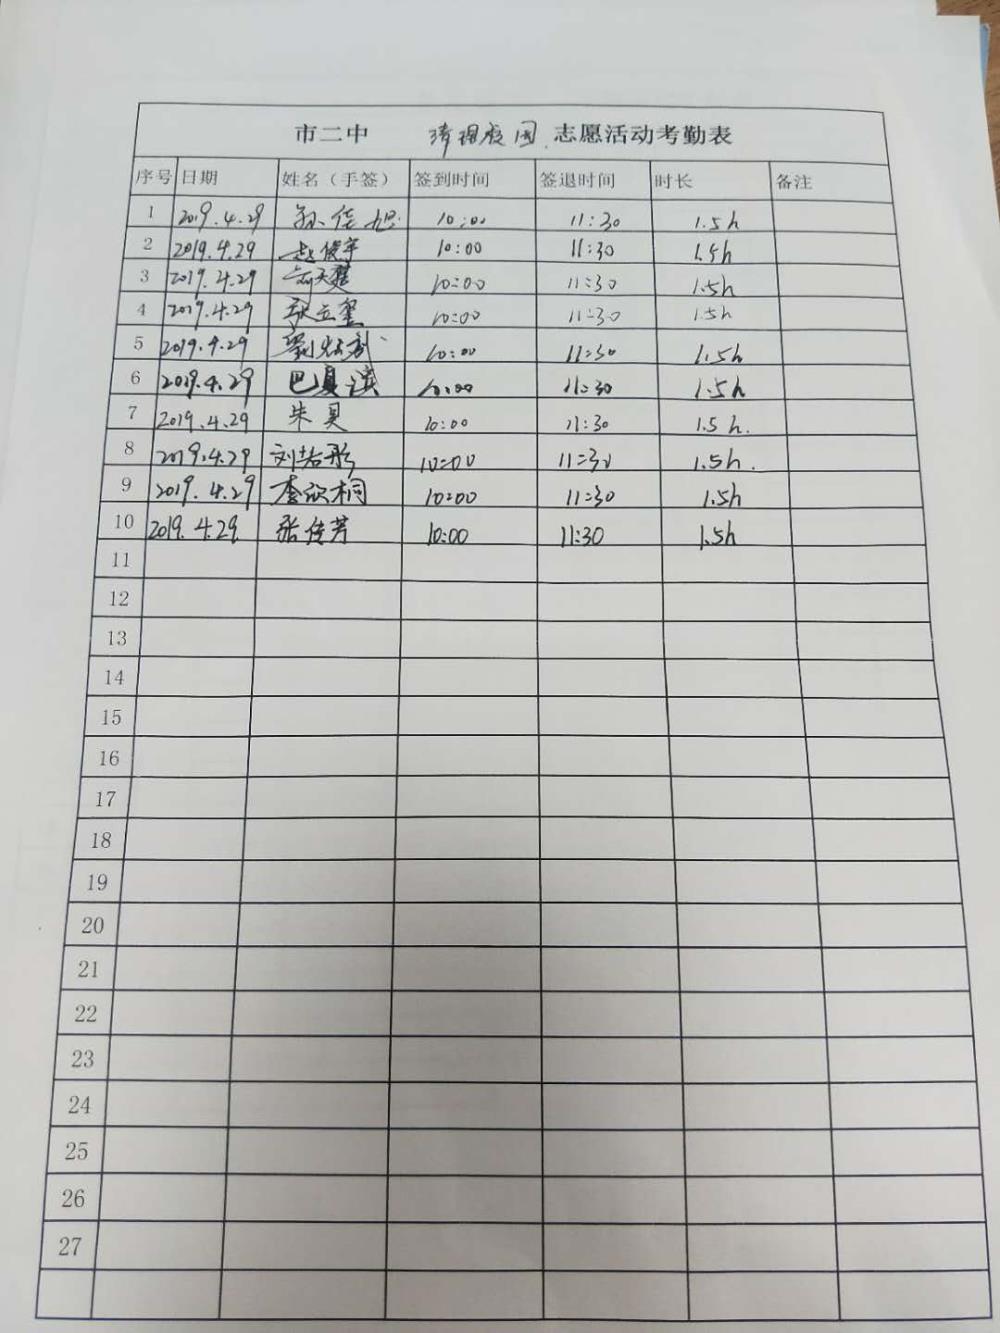 市二中 清理校园 志愿活动考勤表
序号 日期 姓名（手签） 签到时间 签退时间 时长 备注
1 2019.4.29 孙佳旭 10:00 11:30 1.5h
2 2019.4.29 赵俊宇 10:00 11:30 1.5h
3 2019.4.29 10:00 11:30 1.5h
4 2019.4.29 张立玺 10:00 11:30 1.5h
5 2019.4.29 10:00 11:30 1.5h
6 2019.4.29 巴夏滨 10:00 11:30 1.5h
7 2019.4.29 朱昊 10:00 11:30 1.5h.
8 2019.4.29 刘若彤 10:00 11:30 1.5h.
9 2019.4.29 李欣桐 10:00 11:30 1.5h
10 2019.4.29 张传芳 10:00 11:30 1.5h
11
12
13
14
15
16
17
18
19
20
21
22
23
24
25
26
27